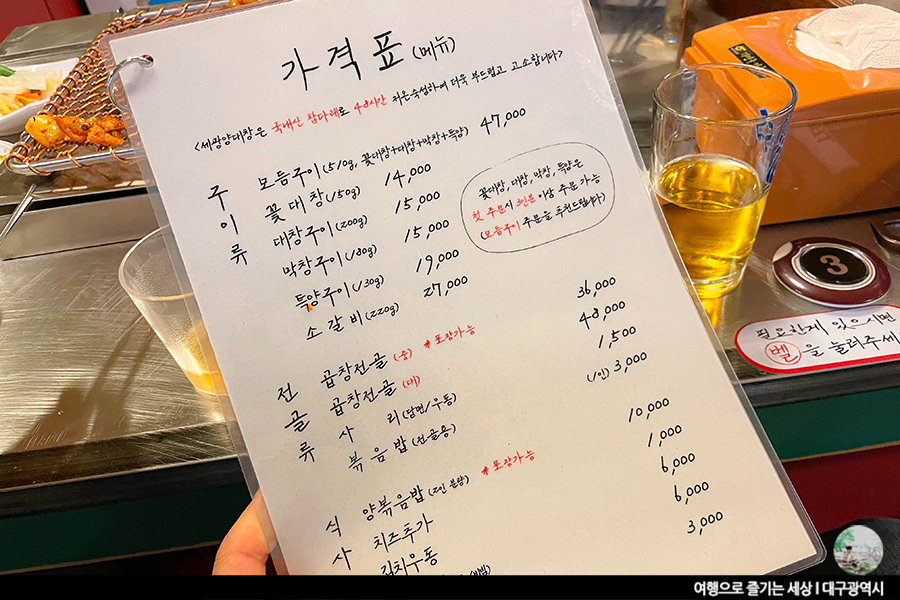 가격표 (메뉴)
<세광양대창은 국내산 참다래로 48시간 저온숙성하여 더욱 부드럽고 고소합니다>
구이류
모듬구이 (510g, 꽃대창+대창+막창+특양) 47,000
꽃대창 (150g) 14,000
대창구이 (200g) 15,000
막창구이 (180g) 15,000
특양구이 (130g) 19,000
소갈비 (220g) 27,000
꽃대창, 대창, 막창, 특양은
첫 주문시 3인분 이상 주문 가능
(모듬구이 주문을 추천드립니다)
전골류
곱창전골 (중) #포장가능 36,000
곱창전골 (대) 48,000
사리 (당면/우동) 1,500
볶음밥 (전골용) (1인) 3,000
식사
양볶음밥 (2인 분량) #포장가능 10,000
치즈추가 1,000
김치우동 6,000
6,000
3,000
3
필요한게 있으시면
벨을 눌러주세
여행으로 즐기는 세상 | 대구광역시